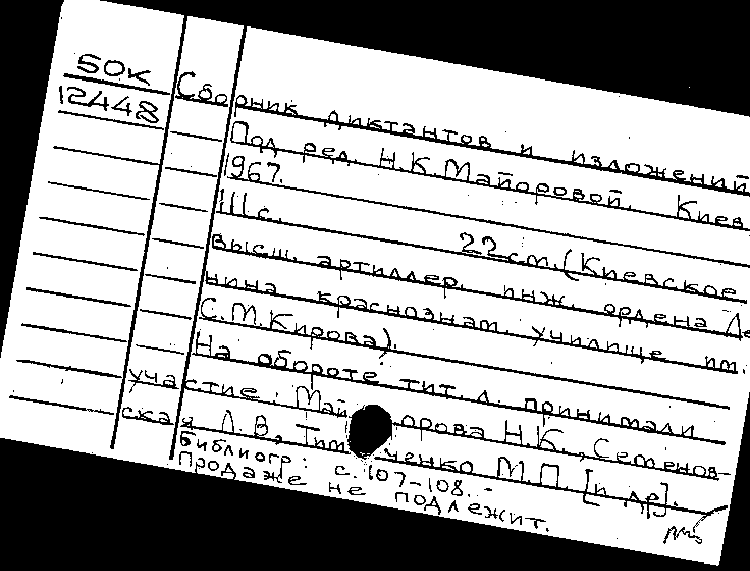 50К
12448
Сборник диктантов и изложений
Под ред. Н.К.Майоровой. Киев,
1967.
111с. 22см.(Киевское
высш. артиллер. инж. ордена Ле
нина краснознам. училище им.
С.М.Кирова).
На обороте тит. л. принимали
участие: Май орова Н.К., Семенов-
ская Л.В, Тим ченко М.П. [и др].
Библиогр: с.107-108.
Продаже не подлежит.